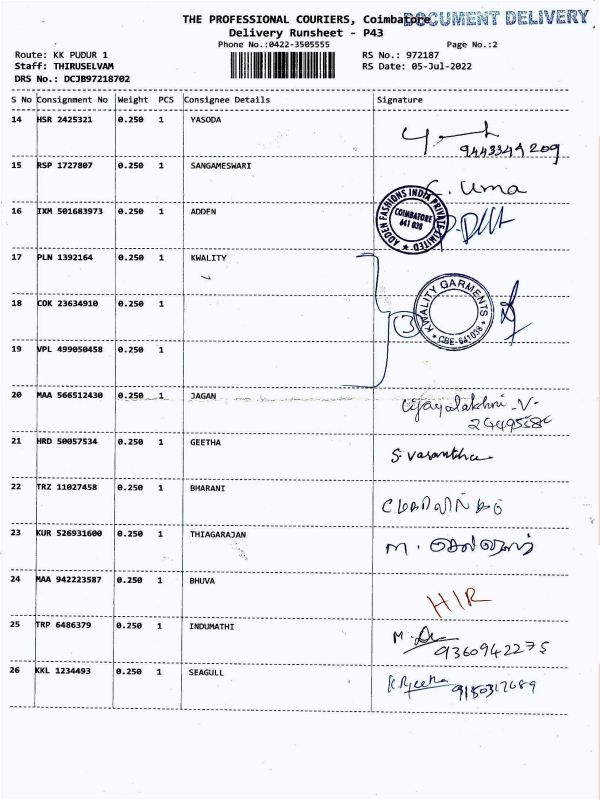 THE PROFESSIONAL COURIERS, Coimbatore DOCUMENT DELIVERY
Delivery Runsheet - P43
Phone No.:0422-3505555 Page No.:2
Route: KK PUDUR 1 RS No.: 972187
Staff: THIRUSELVAM RS Date: 05-Jul-2022
DRS No.: DCJB97218702
S No Consignment No Weight PCS Consignee Details Signature
14 HSR 2425321 0.250 1 YASODA
9443349209
15 RSP 1727807 0.250 1 SANGAMESWARI
C. Uma
16 IXM 501683973 0.250 1 ADDEN
ADDEN FASHIONS INDIA PRIVATE LIMITED
COIMBATORE
641 038
17 PLN 1392164 0.250 1 KWALITY
18 COK 23634910 0.250 1
3 KWALITY GARMENTS
CBE-641038
19 VPL 499050458 0.250 1
20 MAA 566512430 0.250 1 JAGAN
21 HRD 50057534 0.250 1 GEETHA
S. Vasantha
22 TRZ 11027458 0.250 1 BHARANI
23 KUR 526931600 0.250 1 THIAGARAJAN
24 MAA 942223587 0.250 1 BHUVA
HIR
25 TRP 6486379 0.250 1 INDUMATHI
9360942275
26 KKL 1234493 0.250 1 SEAGULL